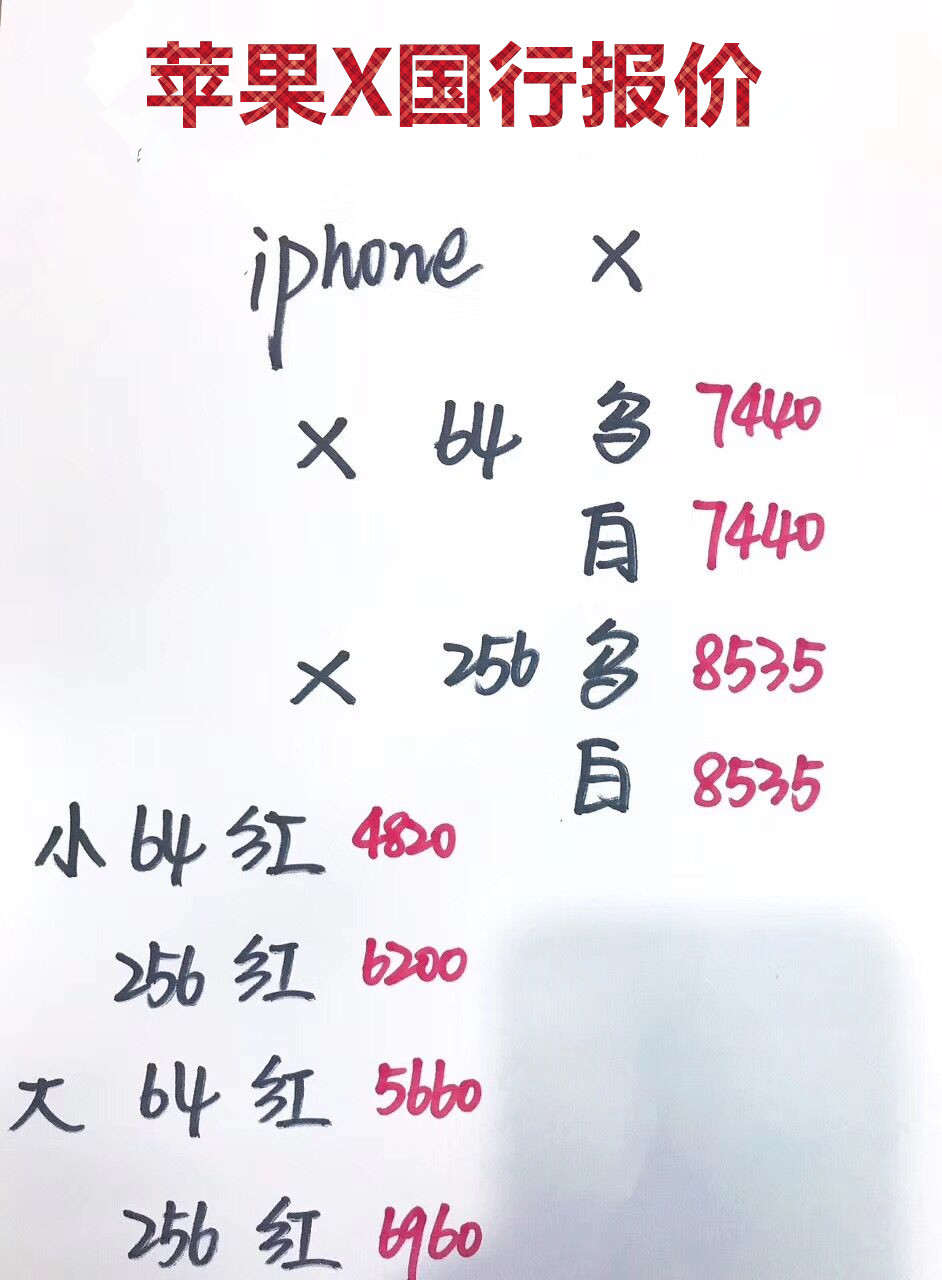 苹果X国行报价
iphone X
X 64 7440
白 7440
X 256 8535
白 8535
小 64 红 4820
256 红 6200
大 64 红 5660
256 红 6960